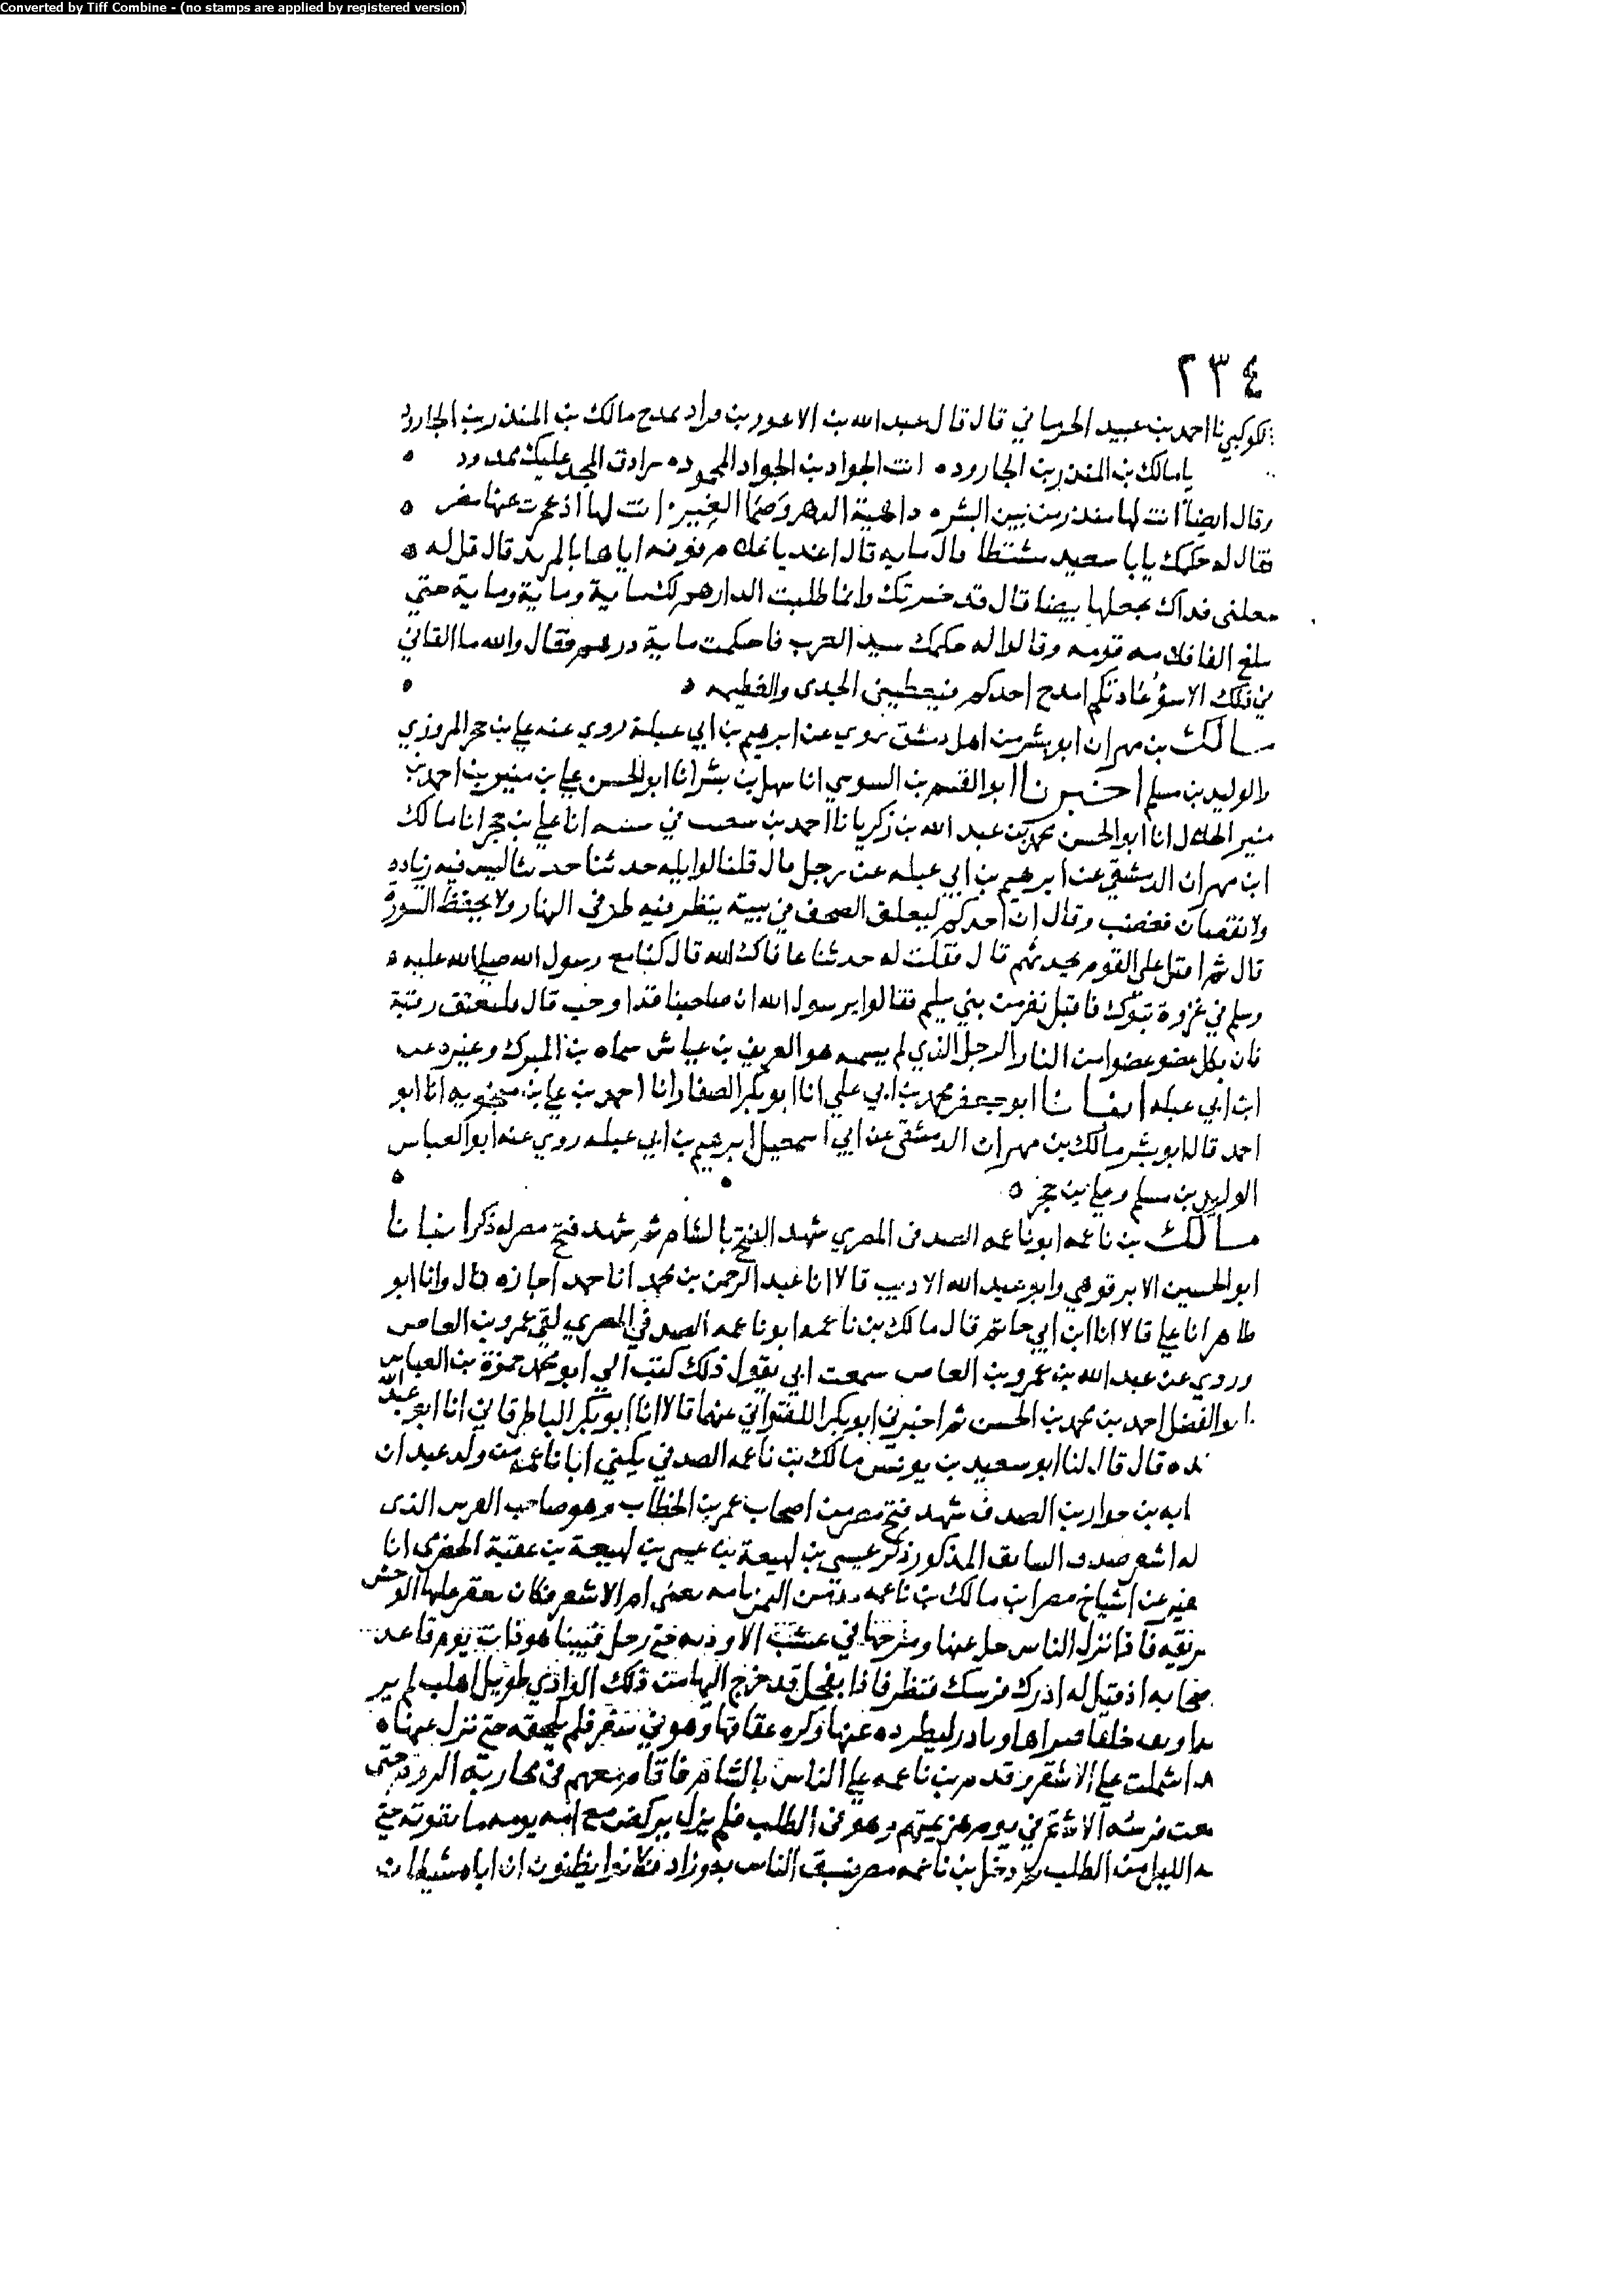 Converted by Tiff Combine - (no stamps are applied by registered version)
٢٣٤
الكوكبي نا احمد بن عبيد الحرماني قال قال عبد الله بن الاعور بن مراد يمدح مالك بن المنذر بن الجارود
يا مالك بن المنذر بن الجارود ه انت الجواد بن الجواد المحمود ه سرادق المجد عليك ممدود ه
وقال ايضا انت لها منذر من بين البشر ه داهية الدهر وصما الغير انت لها اذ عجزت عنها مضر ه
فقال له حكمك يابا سعيد قال مايه قال اغد يا غلام اياها بالمربد قال قل له ه
يجعلها بيضا قال قد خسرتك وانما طلبت الدارهم لك ماية وماية وماية حتي
الفا قومه وقالوا له حكمك سيد العرب فاحكمت ماية درهم فقال والله ما القاني
في ذلك الا سؤ عادتكم امدح احدكم فيعطيني الجدى والفطيمه ه ه
مالك بن مهران ابو بشر من اهل دمشق روي عن ابرهيم بن ابي عبلة روي عنه علي بن حجر المروزي
والوليد بن مسلم اخبرنا ابو القسم بن السوسي انا سهل بن بشر انا ابو الحسن علي بن منير بن احمد بن
منير الخلال انا ابو الحسن محمد بن عبد الله بن زكريا نا احمد بن شعيب في سننه انا علي بن حجر انا مالك
ابن مهران الدمشقي عن ابرهيم بن ابي عبله عن رجل قال قلنا لواثلة حدثنا حديثا ليس فيه زياده
ولا نقصان فغضب وقال ان احدكم ليعلق المصحف في بيته ينظر فيه طرفي النهار ولا يحفظ السورة
قال ثم اقبل على القوم يحدثهم قال فقلت له حدثنا عافاك الله قال كنا مع رسول الله صلى الله عليه ه
وسلم في غزوة تبوك فاقبل نفر من بني سليم فقالوا يرسول الله ان صاحبنا قد اوجب قال فليعتق رقبة
فان بكل عضو عضوا من النار الرجل الذي لم يسمه هو الغريف بن عياش سماه بن المبرك وغيره عن
ابن ابي عبله انبانا ابو جعفر محمد بن ابي علي انا ابو بكر الصفار انا احمد بن علي بن منجويه انا ابو
احمد قال ابو بشر مالك بن مهران الدمشقي عن ابي اسمعيل ابرهيم بن ابي عبله روي عنه ابو العباس
الوليد بن مسلم وعلي بن حجر ه ه ه
مالك بن ناعمه ابو ناعمه الصدفى المصري شهد الفتح بالشام ثم شهد فتح مصر له ذكر انبانا
ابو الحسين الابرقوهي وابو عبد الله الاديب قالا انا عبد الرحمن بن محمد انا حمد اجازه قال وانا ابو
طاهر انا علي قالا انا ابن ابي حاتم قال مالك بن ناعمه ابو ناعمه الصدفي المصري لقي عمرو بن العاص
وروي عن عبد الله بن عمرو بن العاص سمعت ابي يقول ذلك كتب الي ابو محمد حمزة بن العباس
وابو الفضل احمد بن محمد بن الحسن ثم اخبرني ابو بكر اللفتواني عنهما قالا انا ابو بكر الباطرقاني انا ابو عبد الله
نده قال قال لنا ابو سعيد بن يونس مالك بن ناعمه الصدفي يكني ابا ناعمه من ولد عبدان
بن حوار بن الصدف شهد فتح مصر من اصحاب عمر بن الخطاب وهو صاحب الفرس الذى
له اشقر صدف السابق المذكور ذكر عيسي بن لهيعة بن عيسي بن لهيعة بن عقبة الحضرمي انا
غير عن اشياخ مصر ان مالك بن ناعمه من اليمن يعني ام الاشقر فكان يعقر عليها الوحش
فاذا نزل الناس حل عنها وسرحها في عشب الاوديه حتى رحل فبينا هو ذات يوم قاعد
اذ قيل له ادرك فرسك فنظر فاذا بفحل قد خرج اليها من ذلك الوادي طويل اهلب لم ير
خلقا وبادر ليطرده عنها وكره عقاقها وهو في سفر فلم يلحقه حتى نزل عنها ه
اشملت علي الاشقر وقدم بن ناعمه علي الناس بالشام فاقام معهم في محاربة الروم حتى
فرسه الاشقر في يوم هزيمتهم وهو في الطلب فلم يزل يركض مع امه يومه ما تفوته حتى
الليل من الطلب ثم دخل بن ناعمه مصر فسبق الناس به وزاد فكانوا يظنون ان اباه شيطان